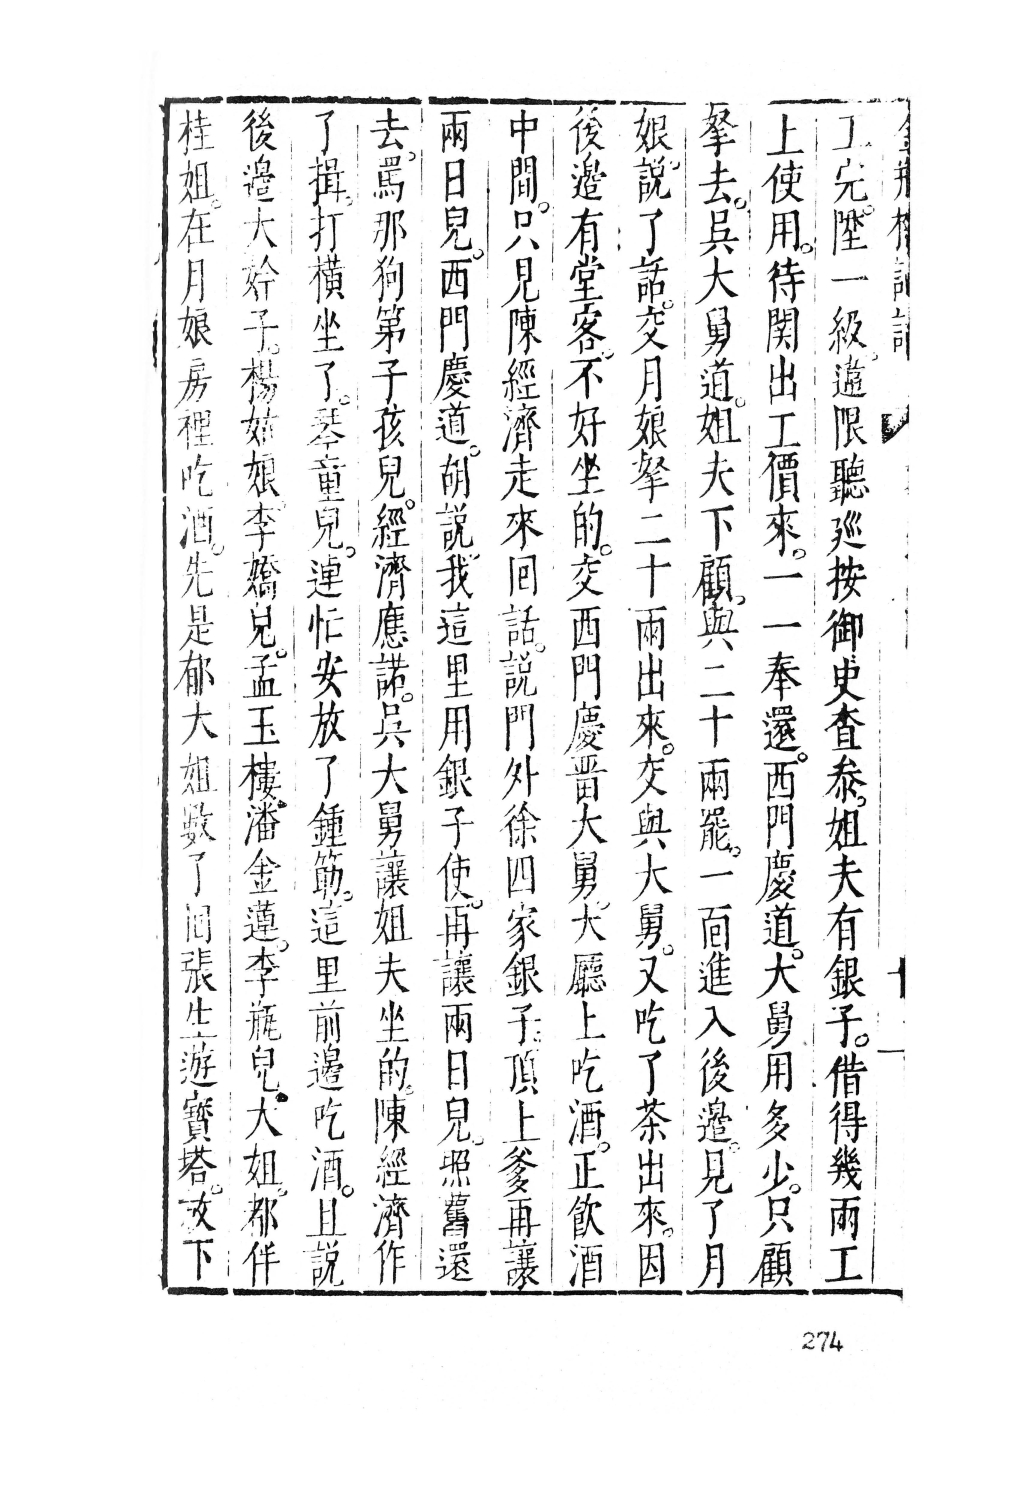 金瓶梅詞話
工完陞一級違限聽廵按御史查叅姐夫有銀子借得幾兩工
上使用待関出工價來一一奉還西門慶道大舅用多少只顧
拏去吳大舅道姐夫下顧與二十兩罷一靣進入後邉見了月
娘說了話交月娘拏二十兩出來交與大舅又吃了茶出來因
後邉有堂客不好坐的交西門慶畱大舅大廳上吃酒正飲酒
中間只見陳經濟走來囘話說門外徐四家銀子頂上爹再讓
兩日兒西門慶道胡說我這里用銀子使再讓兩日兒照舊還
去罵那狗第子孩兒經濟應諾吳大舅讓姐夫坐的陳經濟作
了揖打橫坐了琴童兒連忙安放了鍾筯這里前邉吃酒且說
後邉大妗子楊姑娘李嬌兒孟玉樓潘金蓮李瓶兒大姐都伴
桂姐在月娘房裡吃酒先是郁大姐數了囘張生遊寳塔放下
274